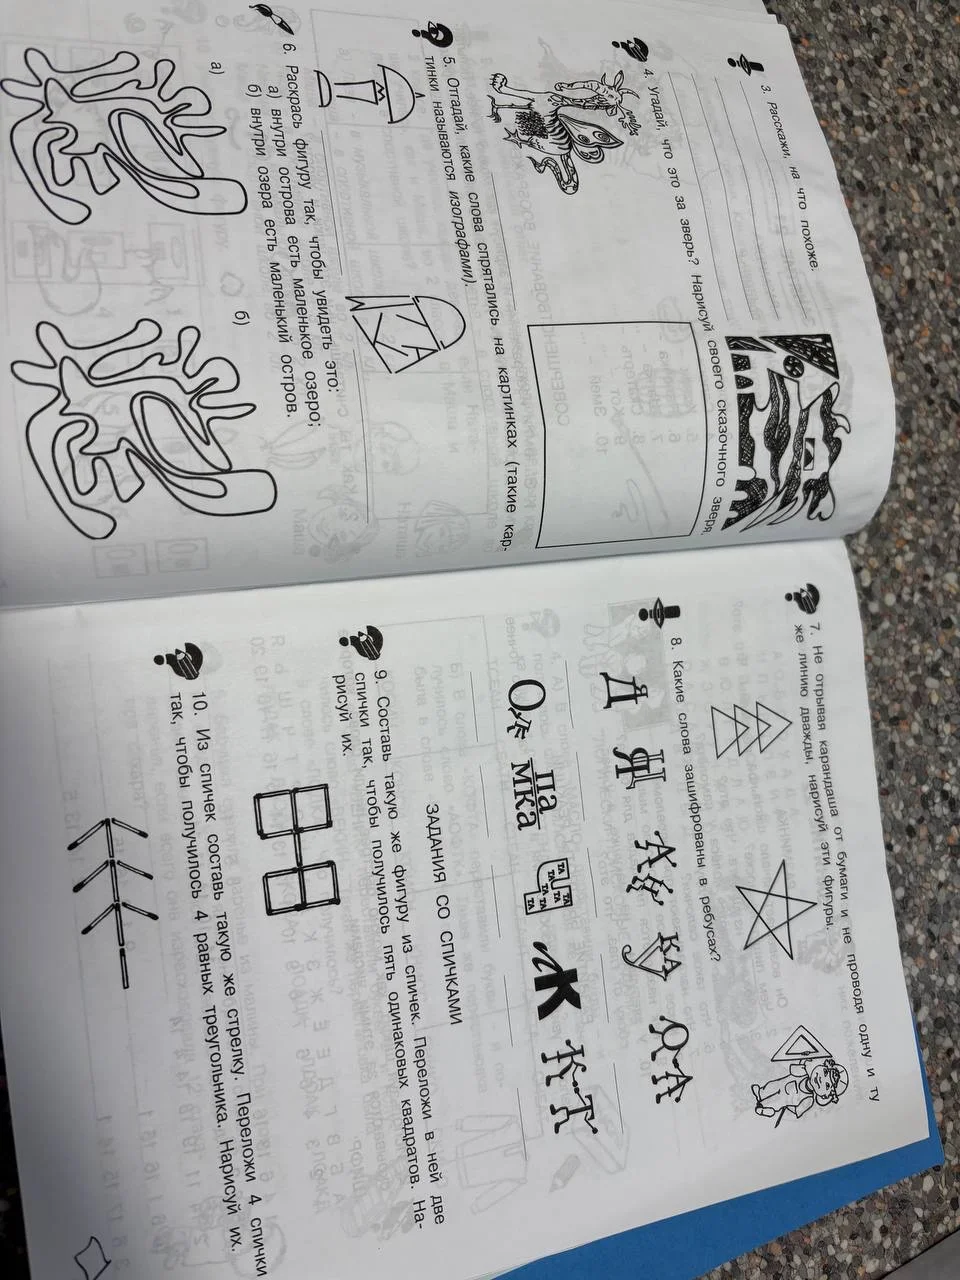 3. Расскажи, на что похоже.
4. Угадай, что это за зверь? Нарисуй своего сказочного зверя.
5. Отгадай, какие слова спрятались на картинках (такие кар-
тинки называются изографами).
6. Раскрась фигуру так, чтобы увидеть это:
а) внутри острова есть маленькое озеро;
б) внутри озера есть маленький остров.
а)
б)
7. Не отрывая карандаша от бумаги и не проводя одну и ту
же линию дважды, нарисуй эти фигуры.
8. Какие слова зашифрованы в ребусах?
ЗАДАНИЯ СО СПИЧКАМИ
9. Составь такую же фигуру из спичек. Переложи в ней две
спички так, чтобы получилось пять одинаковых квадратов. На-
рисуй их.
10. Из спичек составь такую же стрелку. Переложи 4 спички
так, чтобы получилось 4 равных треугольника. Нарисуй их.